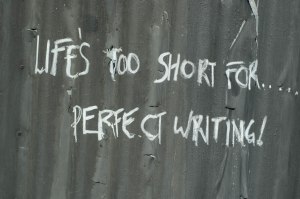 LIFE'S TOO SHORT FOR......
PERFECT WRITING!